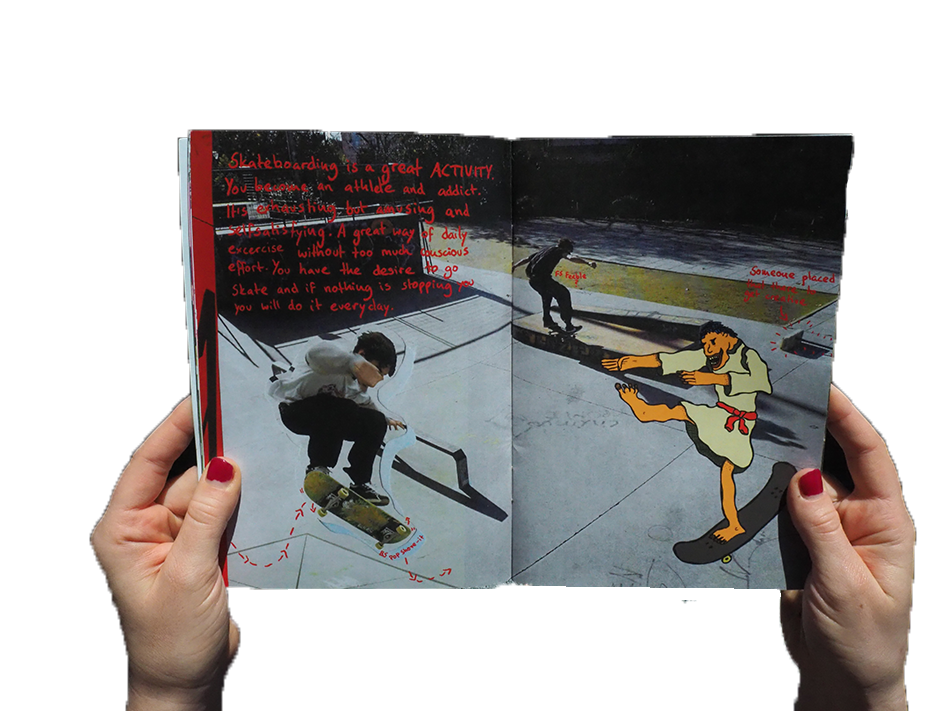 Skateboarding is a great ACTIVITY.
You become an athlete and addict.
It's exhausting but amusing and
selfsatisfying. A great way of daily
excercise without too much conscious
effort. You have the desire to go
skate and if nothing is stopping you
you will do it everyday.
FS Feeble
Someone placed
that there to
get
BS Pop Shove-it